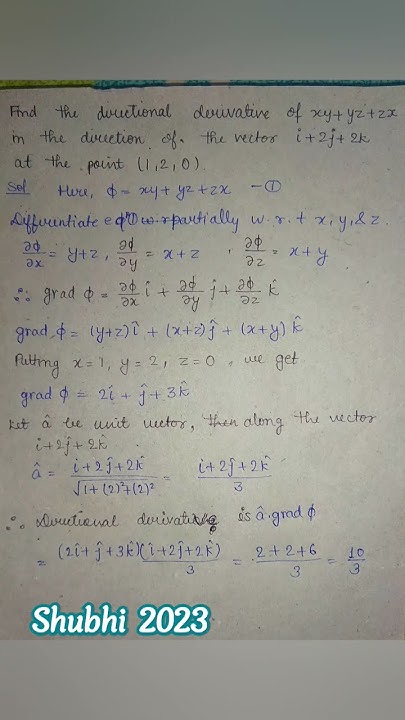 Find the directional derivative of xy+yz+zx
in the direction of the vector i+2j+2k
at the point (1,2,0).
Sol Here, ϕ = xy+yz+zx —①
Differentiate eqⁿ① w.r partially w.r.t x, y, & z.
∂ϕ/∂x = y+z, ∂ϕ/∂y = x+z, ∂ϕ/∂z = x+y
∴ grad ϕ = ∂ϕ/∂x î + ∂ϕ/∂y ĵ + ∂ϕ/∂z k̂
grad ϕ = (y+z)î + (x+z)ĵ + (x+y)k̂
Putting x=1, y=2, z=0. we get
grad ϕ = 2î + ĵ + 3k̂
Let â be unit vector, then along the vector
i+2j+2k
â = (i+2ĵ+2k̂)/√(1+(2)²+(2)²) = (i+2ĵ+2k̂)/3
∴ Directional derivative is â.grad ϕ
= (2î+ĵ+3k̂)(î+2ĵ+2k̂)/3 = (2+2+6)/3 = 10/3
Shubhi 2023